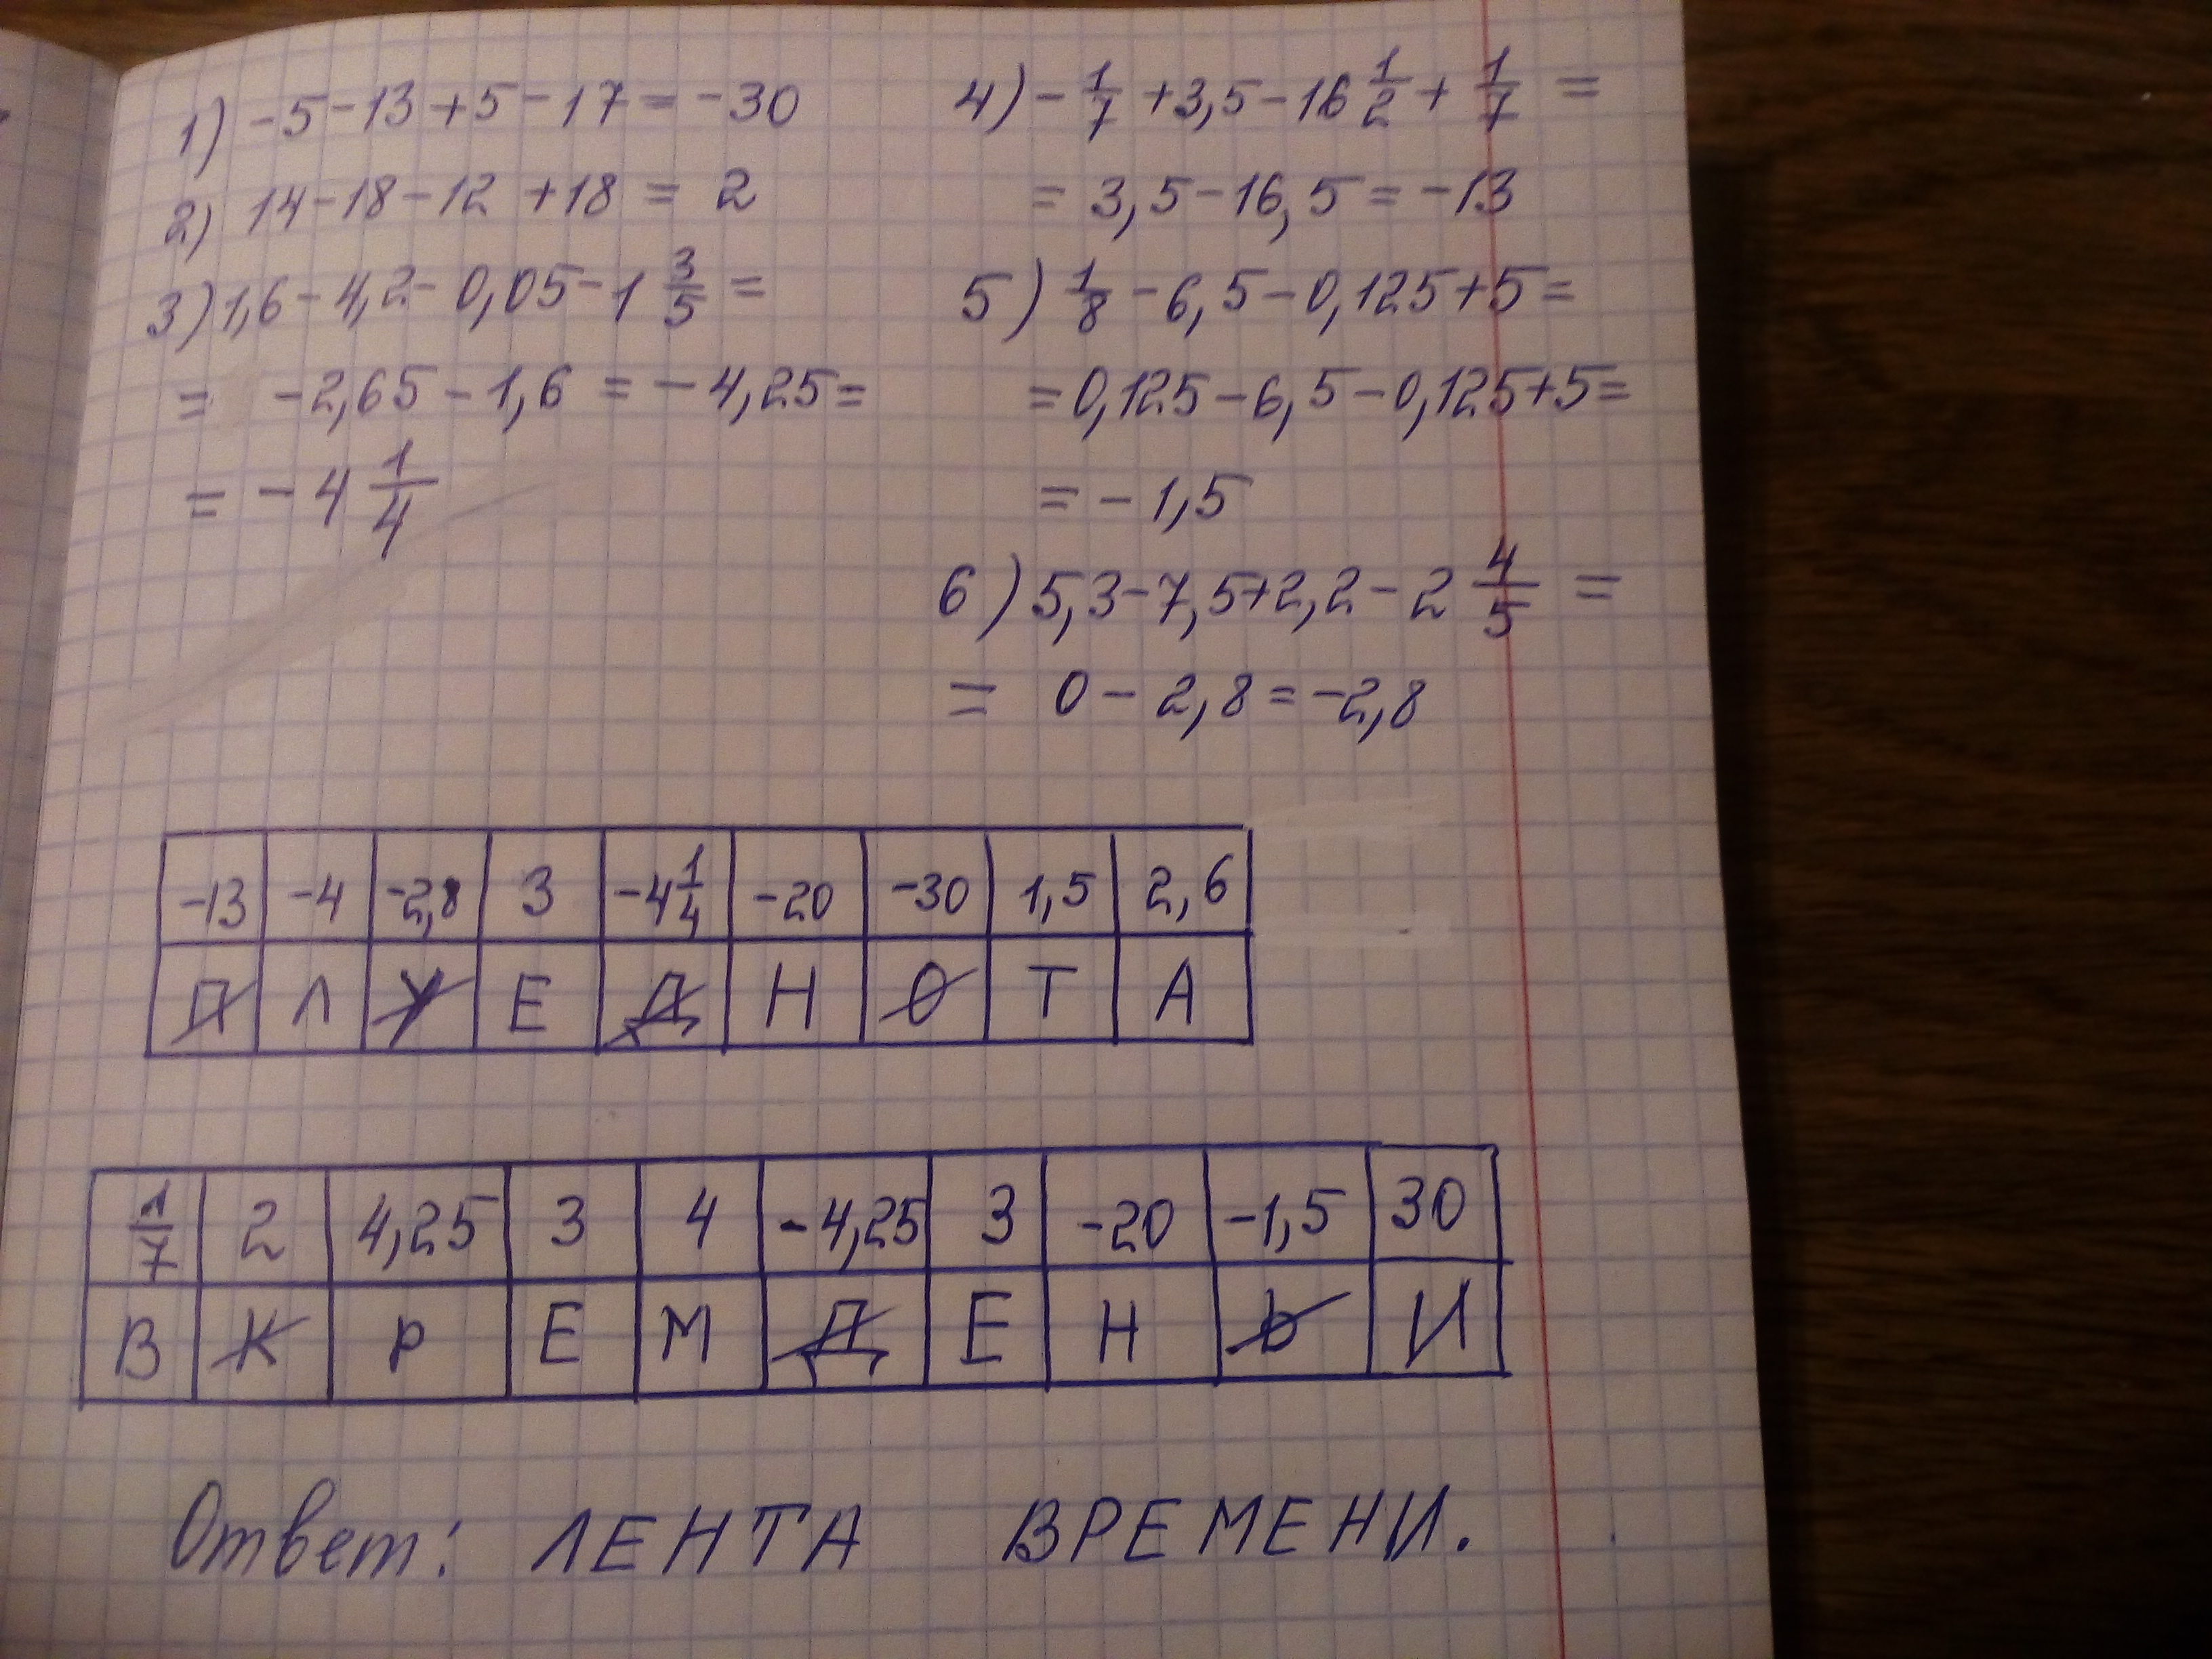 1) -5-13+5-17=-30
2) 14-18-12+18=2
3) 1,6-4,2-0,05-1 3/5 =
= -2,65-1,6=-4,25=
= -4 1/4
4) - 1/7 +3,5-16 1/2 + 1/7 =
= 3,5-16,5=-13
5) 1/8 -6,5-0,125+5=
=0,125-6,5-0,125+5=
=-1,5
6) 5,3-7,5+2,2-2 4/5 =
= 0-2,8=-2,8
-13 -4 -2,8 3 -4 1/4 -20 -30 1,5 2,6
П Л У Е Д Н О Т А
1/7 2 4,25 3 4 -4,25 3 -20 -1,5 30
В К Р Е М Д Е Н Ь И
Ответ: ЛЕНТА ВРЕМЕНИ.